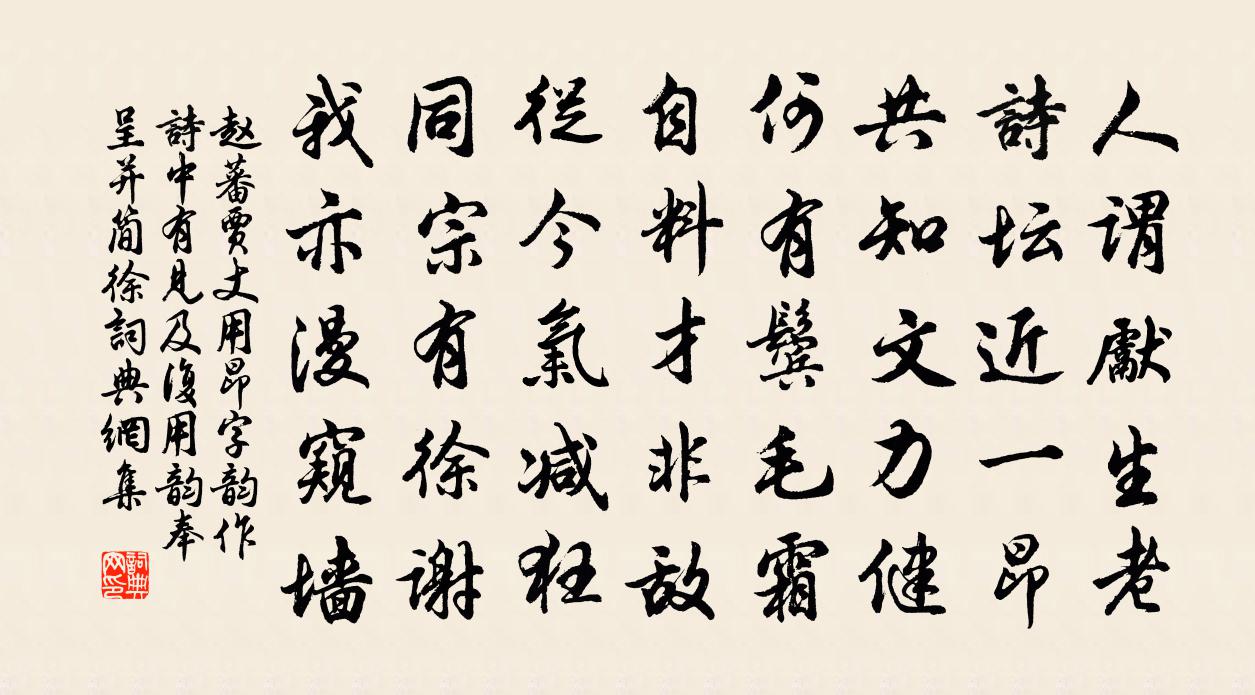 人謂獻生老
詩坛近一昂
共知文力健
何有鬓毛霜
自料才非敌
從今氣减狂
同宗有徐謝
我亦漫窺墙
赵蕃賈丈用昂字韵作
詩中有見及復用韵奉
呈并简徐詞典網集
詞典
网印